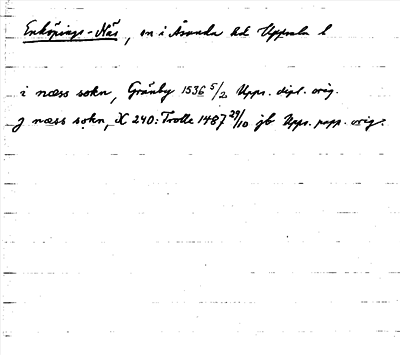 Enköpings-Näs, sn i Åsunda hd Uppsala l
i næss sokn, Gränby 1536 5/2 Upps. dipl. orig.
J næss sokn, X 240: Trolle 1487 29/10 jb Upps. papp. orig.